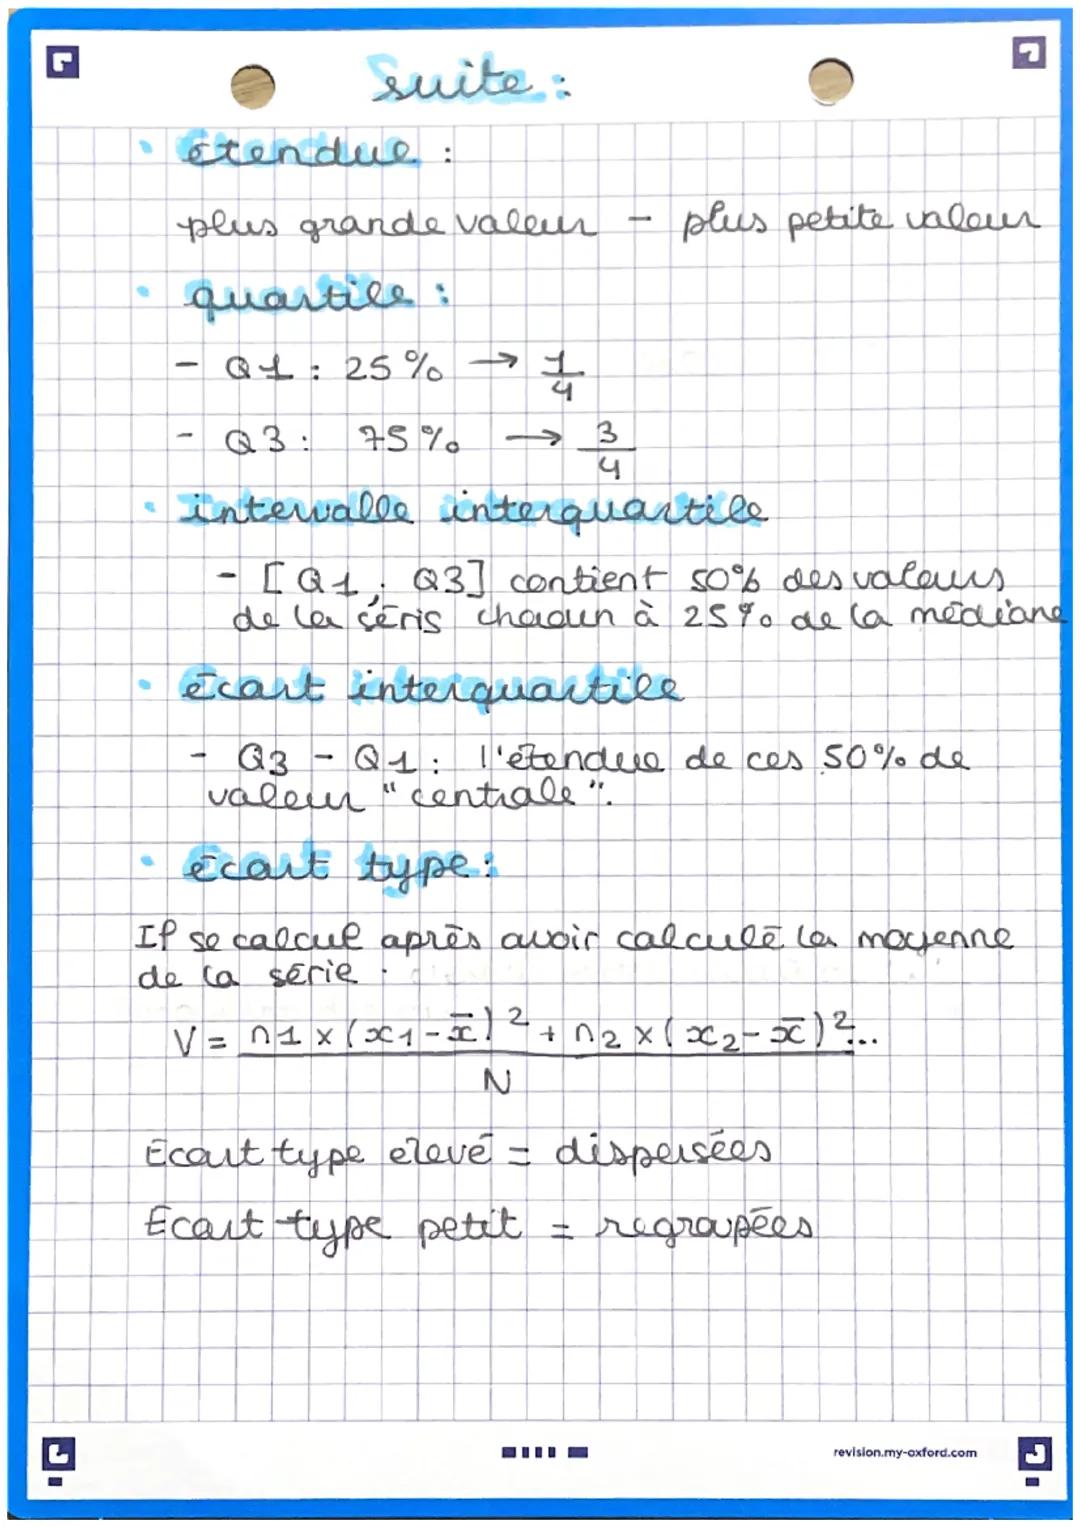 Suite :
• étendue :
plus grande valeur - plus petite valeur
• quartile :
- Q1 : 25% → 1/4
- Q3 : 75% → 3/4
• intervalle interquartile
- [Q1 ; Q3] contient 50% des valeurs
de la séris chacun à 25% de la médiane
• écart interquartile
- Q3 - Q1 : l'étendue de ces 50% de
valeur "centrale".
• écart type :
Il se calcul après avoir calculé la moyenne
de la série .
V = n1 x (x1 - x̄)² + n2 x (x2 - x̄)²... / N
Ecart type elevé = dispersées
Ecart type petit = regrapées
revision.my-oxford.com